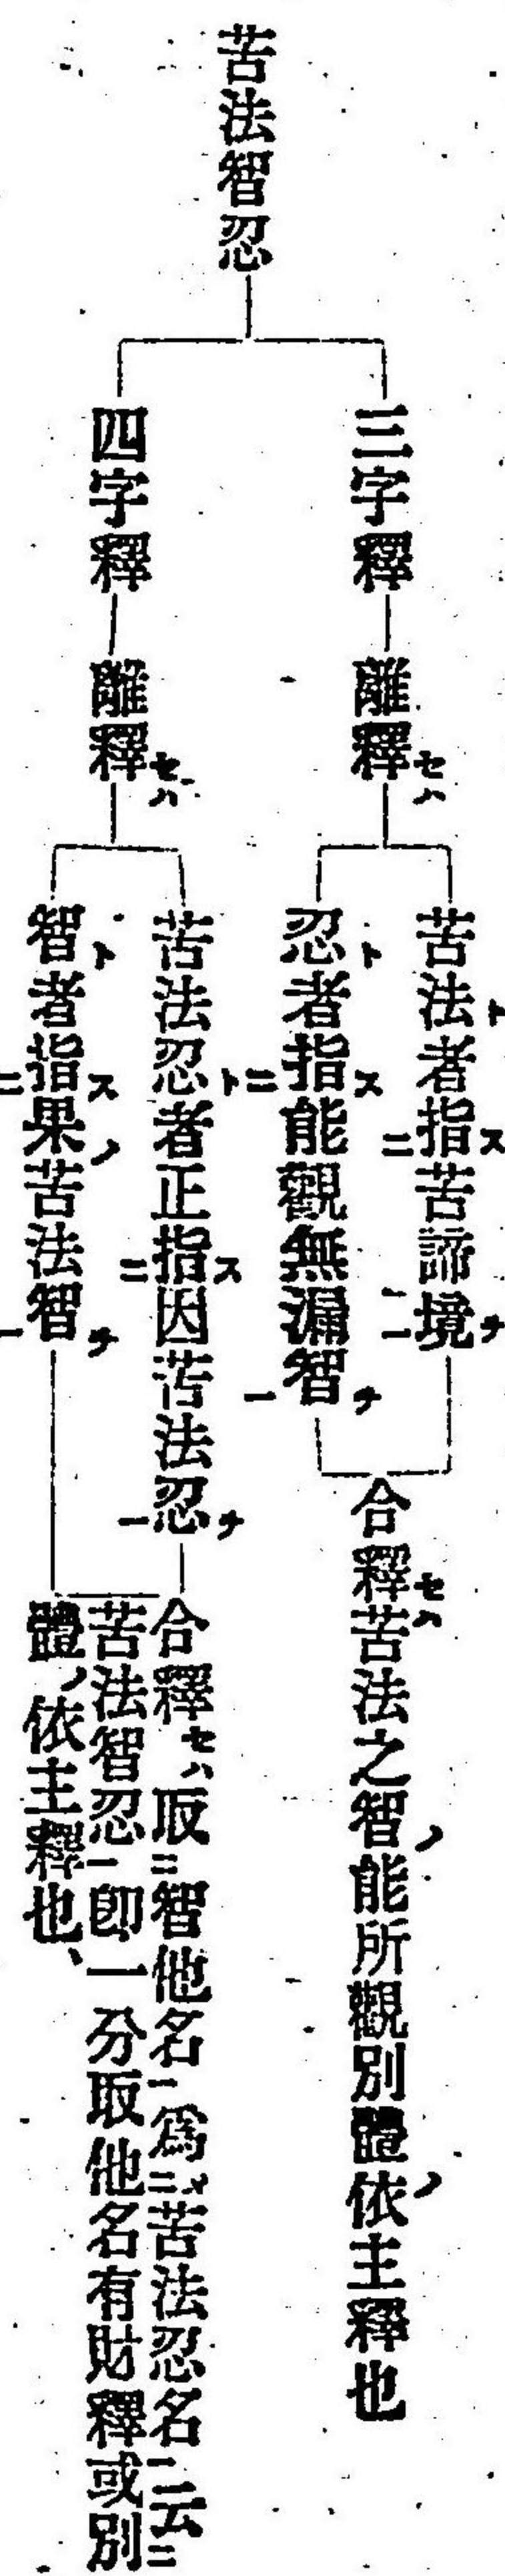 苦法智忍
三字釋
離釋セハ
苦法ト者指ス二苦諦境ヲ一
忍ト者指ス二能觀無漏智ヲ一
合釋セハ苦法之智ノ能所觀別體ノ依主釋也
四字釋
離釋セハ
苦法忍ト者正指ス二因苦法忍ヲ一
智ト者指ス二果ノ苦法智ヲ一
合釋セハ、取二智他名一爲二メ苦法忍名一云二
苦法智忍一卽一分取他名有財釋或別
體ノ依主釋也、